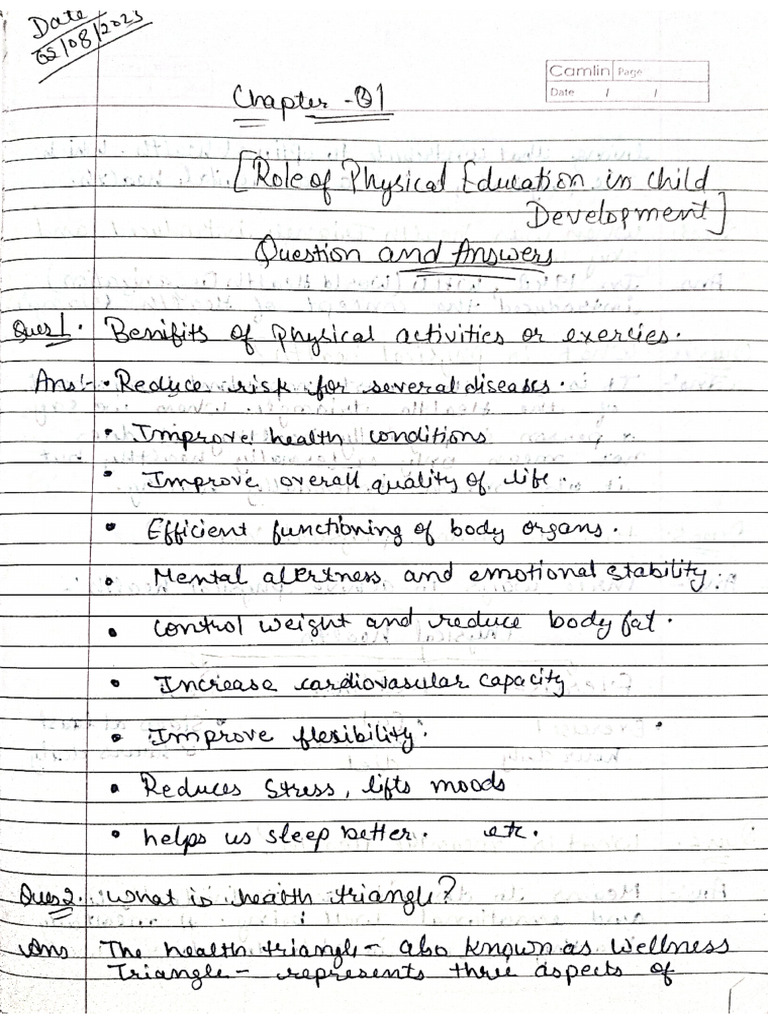 Date
02/08/2023
Camlin Page
Date / /
Chapter - 01
[Role of Physical Education in child
Development]
Question and Answers
Ques 1. Benifits of physical activities or exercies.
Ans:- • Reduce risk for several diseases.
• Improve health conditions
• Improve overall quality of life.
• Efficient functioning of body organs.
• Mental alertness and emotional stability.
• control weight and reduce body fat.
• Increase cardiovascular capacity
• Improve flexibility.
• Reduces stress, lifts moods
• helps us sleep better. etc.
Ques 2. What is health triangle?
Ans The health triangle - also known as wellness
Triangle - represents three aspects of